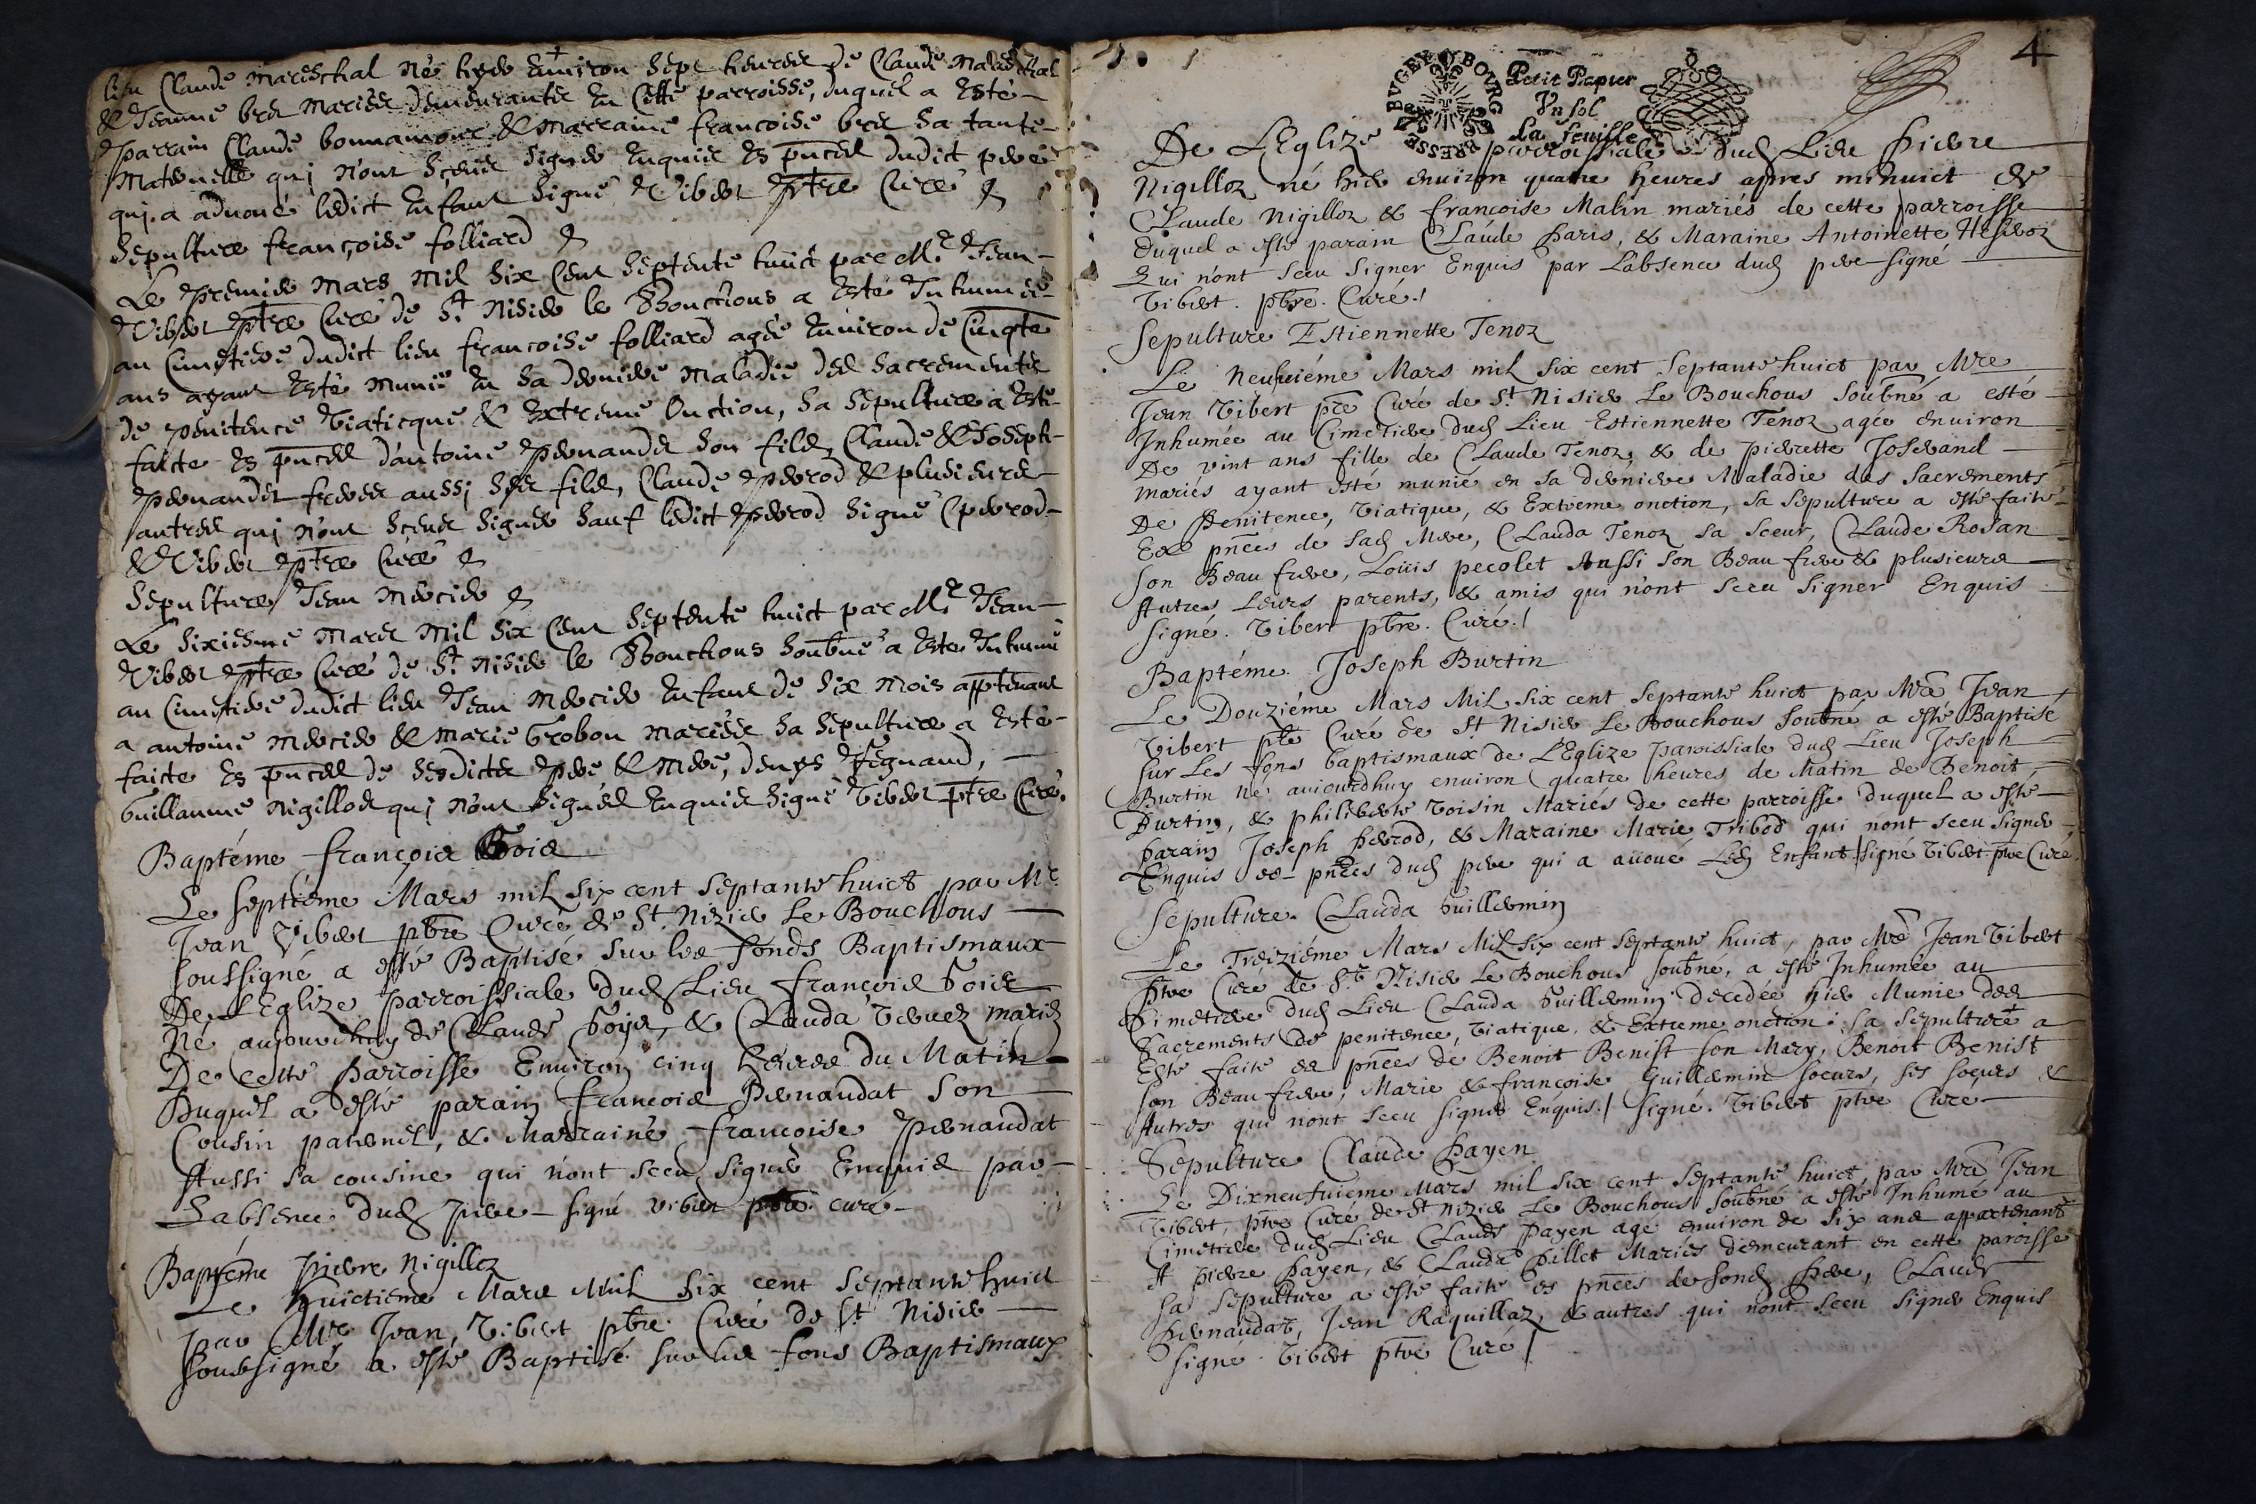 lieu Claude Mareschal né hyer environ sept heures de Claude Mareschal
& Jeanne bree mariés demeurants en cette parroisse, duquel a esté
parrain Claude bonnamour & marraine francoise bree sa tante
maternelle qui n'ont sceus signer enquis es pnces dudict pere
qui a advoué ledict enfant signé Vibert ptre Curé
Sepulture françoise folliard
Le premier mars mil six cent septente huict par Mr Jean
Vibert ptre Curé de St Nisier le Bouchous a esté Inhumée
au Cimetiere dudict lieu francoise folliard agée environ de Cinqte
ans ayant esté munie en sa derniere maladie des sacrements
de penitence Viaticque & extreme Onction, sa sepulture a esté
faicte es pnces d'antoine pernandet son fils, Claude & Joseph
pernandet freres aussi ses fils, Claude perrod & plusieurs
autres qui n'ont sceus signer sauf ledict perrod signé C perrod
& Vibert ptre Curé
Sepulture Jean mercier
Le sixiesme mars mil six cent septente huict par Mr Jean
Vibert ptre Curé de St Nisier le Bouchous soubné a esté Inhumé
au Cimetiere dudict lieu Jean mercier enfant de six mois apptenant
a antoine mercier & marie Grobon mariés sa sepulture a esté
faicte es pnces de sesdicts pere & mere, denys
Guillaume nigillod qui n'ont signés enquis signé Vibert ptre Curé
Baptéme françois Goie
Le septiéme Mars mil six cent septante huict par Mr
Jean Vibert pbre Curé de St Nizier Le Bouchous
soussigné a esté Baptisé sur les fonds Baptismaux
De L'Eglize parroissiale dud Lieu françois Goie
Né aujourdhuy de Claude Goye, & Clauda mariés
De cette parroisse Environ cinq heures du Matin
Duquel a esté parain françois Pernandat son
Cousin paternel, & Marraine francoise pernandat
Aussi sa cousine qui n'ont sceu signer Enquis par
Labsence dud pere signé vibert pbre curé
Baptéme pierre nigilloz
Le huictieme Mars Mil six cent septante huict
par Mre Jean Vibert pbre Curé de St Nisier
soubsigné a esté Baptisé sur les fons Baptismaux
4
BVGEY BOVRG BRESSE
Petit Papier
Vn sol
La feuille
De L'Eglize parroissiale dud Lieu pierre
Nigilloz né hier environ quatre heures apres minuict de
Claude Nigilloz & francoise Malin mariés de cette parroisse
Duquel a esté parain Claude paris, & Maraine Antoinette
Qui n'ont sceu signer Enquis par L'absence dud pere signé
Vibert pbre Curé
Sepulture Estiennette Tenoz
Le Neufuiéme Mars mil six cent septante huict par Mre
Jean Vibert pre Curé de St Nisier Le Bouchous soubné a esté
Inhumée au Cimetiere dud Lieu Estiennette Tenoz agée environ
De vint ans fille de Claude Tenoz & de pierrette Joserand
mariés ayant esté munie en sa derniere Maladie des sacrements
De Penitence, Viatique, & Extreme onction, sa sepulture a esté faite
Es pnces de sad Mere, Clauda Tenoz sa soeur, Claude Rosan
son Beau frere, Loüis pecolet Aussi son Beau frere & plusieurs
Autres Leurs parents, & amis qui n'ont sceu signer Enquis
signé. Vibert pbre. Curé.
Baptéme Joseph Burtin
Le Douziéme Mars Mil six cent septante huict par Mre Jean
Vibert pbre Curé de St Nisier Le Bouchous soubné a esté Baptisé
sur Les fons baptismaux de L'Eglize paroissiale dud Lieu Joseph
Burtin né aujourdhuy environ quatre heures de Matin de Benoit
Burtin, & philiberte Voisin Mariés de cette parroisse duquel a esté
parain Joseph perrod, & Maraine Marie Tribod qui n'ont sceu signer
Enquis es pnces dud pere qui a auoué Led Enfant signé Vibert ptre Curé
Sepulture. Clauda Guillermin
Le Treiziéme Mars Mil six cent septante huict, par Mre Jean Vibert
ptre Curé de St Nisier Le Bouchous soubné, a esté Inhumée au
Cimetiere dud Lieu Clauda Guillermin decedée hier Munie des
Sacrements de penitence, Viatique, & Extreme onction; sa sepulture a
Esté faite es pnces de Benoit Benist son Mary, Benoit Benist
son Beau frere, Marie & françoise Guillermin soeurs, ses soeurs &
Autres qui n'ont sceu signer Enquis. signé. Vibert ptre Curé
Sepulture Claude Payen
Le Dixneufuieme Mars mil six cent septante huict, par Mre Jean
Vibert, ptre Curé de St Nizier Le Bouchous soubné a esté Inhumé au
Cimetiere dud Lieu Claude Payen agé environ de six ans appartenant
A pierre Payen, & Clauda pillet Mariés demeurant en cette paroisse
sa sepulture a esté faite es pnces de sond pere, Claude
Pernandat, Jean Raquillaz, & autres qui n'ont sceu signer Enquis
signé Vibert ptre Curé